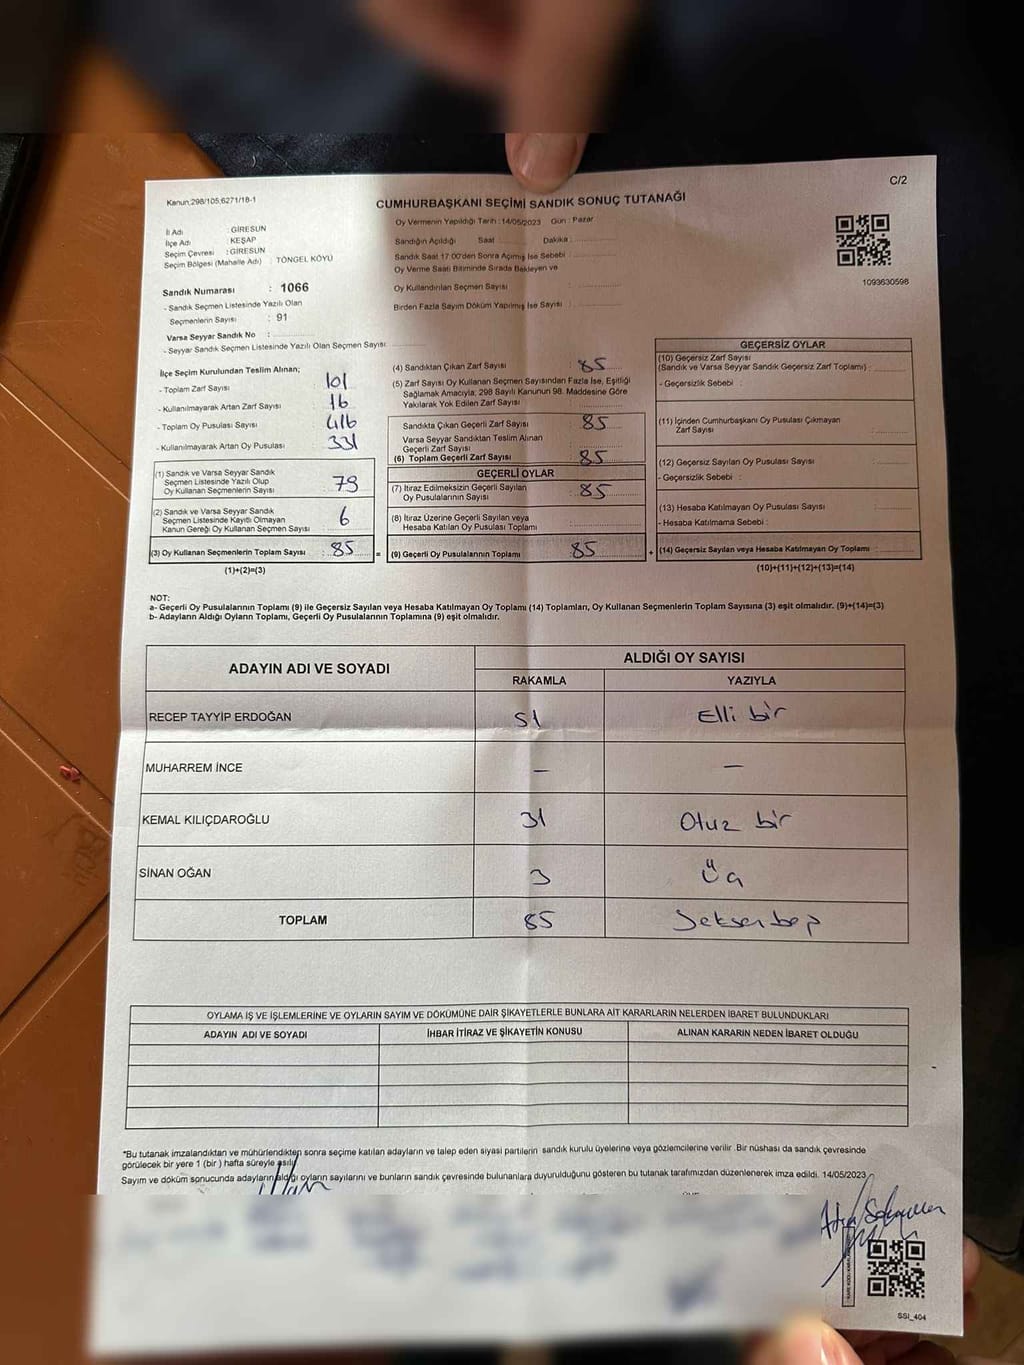 C/2
Kanun:298/105;6271/18-1
CUMHURBAŞKANI SEÇİMİ SANDIK SONUÇ TUTANAĞI
Oy Vermenin Yapıldığı Tarih : 14/05/2023 Gün : Pazar
İl Adı : GİRESUN
İlçe Adı : KEŞAP
Seçim Çevresi : GİRESUN
Seçim Bölgesi (Mahalle Adı) : TÖNGEL KÖYÜ
Sandık Numarası : 1066
- Sandık Seçmen Listesinde Yazılı Olan
Seçmenlerin Sayısı : 91
Varsa Seyyar Sandık No :
- Seyyar Sandık Seçmen Listesinde Yazılı Olan Seçmen Sayısı:
Sandığın Açıldığı Saat Dakika :
Sandık Saat 17:00'den Sonra Açılmış İse Sebebi :
Oy Verme Saati Bitiminde Sırada Bekleyen ve
Oy Kullandırılan Seçmen Sayısı :
Birden Fazla Sayım Döküm Yapılmış İse Sayısı :
1093630598
İlçe Seçim Kurulundan Teslim Alınan;
- Toplam Zarf Sayısı : 101
- Kullanılmayarak Artan Zarf Sayısı : 16
- Toplam Oy Pusulası Sayısı : 416
- Kullanılmayarak Artan Oy Pusulası : 331
(1) Sandık ve Varsa Seyyar Sandık
Seçmen Listesinde Yazılı Olup
Oy Kullanan Seçmenlerin Sayısı : 79
(2) Sandık ve Varsa Seyyar Sandık
Seçmen Listesinde Kayıtlı Olmayan
Kanun Gereği Oy Kullanan Seçmen Sayısı : 6
(3) Oy Kullanan Seçmenlerin Toplam Sayısı : 85 =
(1)+(2)=(3)
(4) Sandıktan Çıkan Zarf Sayısı : 85
(5) Zarf Sayısı Oy Kullanan Seçmen Sayısından Fazla İse, Eşitliği
Sağlamak Amacıyla, 298 Sayılı Kanunun 98. Maddesine Göre
Yakılarak Yok Edilen Zarf Sayısı :
Sandıkta Çıkan Geçerli Zarf Sayısı : 85
Varsa Seyyar Sandıktan Teslim Alınan
Geçerli Zarf Sayısı :
(6) Toplam Geçerli Zarf Sayısı : 85
GEÇERLİ OYLAR
(7) İtiraz Edilmeksizin Geçerli Sayılan
Oy Pusulalarının Sayısı : 85
(8) İtiraz Üzerine Geçerli Sayılan veya
Hesaba Katılan Oy Pusulası Toplamı :
(9) Geçerli Oy Pusulalarının Toplamı : 85 +
GEÇERSİZ OYLAR
(10) Geçersiz Zarf Sayısı
(Sandık ve Varsa Seyyar Sandık Geçersiz Zarf Toplamı) :
- Geçersizlik Sebebi :
(11) İçinden Cumhurbaşkanı Oy Pusulası Çıkmayan
Zarf Sayısı :
(12) Geçersiz Sayılan Oy Pusulası Sayısı :
- Geçersizlik Sebebi :
(13) Hesaba Katılmayan Oy Pusulası Sayısı :
- Hesaba Katılmama Sebebi :
(14) Geçersiz Sayılan veya Hesaba Katılmayan Oy Toplamı :
(10)+(11)+(12)+(13)=(14)
NOT:
a- Geçerli Oy Pusulalarının Toplamı (9) ile Geçersiz Sayılan veya Hesaba Katılmayan Oy Toplamı (14) Toplamları, Oy Kullanan Seçmenlerin Toplam Sayısına (3) eşit olmalıdır. (9)+(14)=(3)
b- Adayların Aldığı Oyların Toplamı, Geçerli Oy Pusulalarının Toplamına (9) eşit olmalıdır.
ADAYIN ADI VE SOYADI ALDIĞI OY SAYISI
RAKAMLA YAZIYLA
RECEP TAYYİP ERDOĞAN 51 Elli bir
MUHARREM İNCE – –
KEMAL KILIÇDAROĞLU 31 Otuz bir
SİNAN OĞAN 3 Üç
TOPLAM 85 Seksenbeş
OYLAMA İŞ VE İŞLEMLERİNE VE OYLARIN SAYIM VE DÖKÜMÜNE DAİR ŞİKAYETLERLE BUNLARA AİT KARARLARIN NELERDEN İBARET BULUNDUKLARI
ADAYIN ADI VE SOYADI İHBAR İTİRAZ VE ŞİKAYETİN KONUSU ALINAN KARARIN NEDEN İBARET OLDUĞU
*Bu tutanak imzalandıktan ve mühürlendikten sonra seçime katılan adayların ve talep eden siyasi partilerin sandık kurulu üyelerine veya gözlemcilerine verilir .Bir nüshası da sandık çevresinde
görülecek bir yere 1 (bir ) hafta süreyle asılır.
Sayım ve döküm sonucunda adayların aldığı oyların sayılarını ve bunların sandık çevresinde bulunanlara duyurulduğunu gösteren bu tutanak tarafımızdan düzenlenerek imza edildi. 14/05/2023
SSI_404